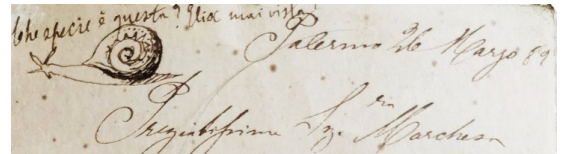 Che specie è questa? Elix mai vista!
Palermo 26 Marzo 89
Pregiatissima Sig.ra Marchesa